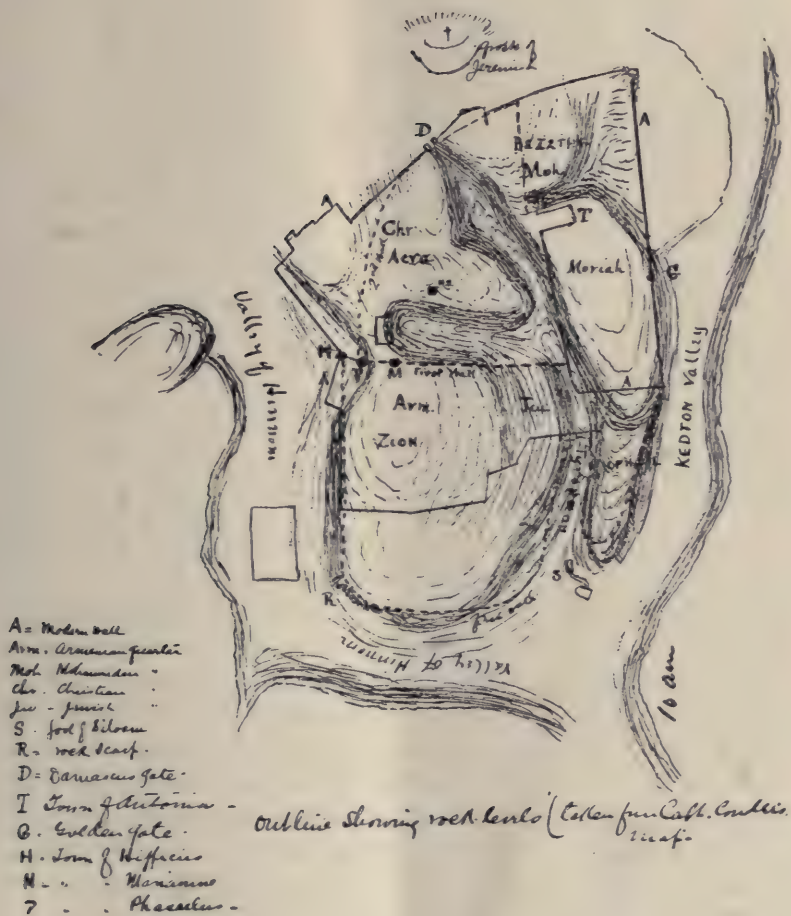 Grotto of
Jeremiah
D
A
BEZETHA
Moh
A
T
Chr
Acra
2nd wall
Moriah
G
Valley of Hinnom
H
A
P
M
First Wall
A
Arm.
Jew
ZION
OPHEL
KEDRON Valley
S
R
first wall
Valley of Hinnom
A = Modern wall
Arm. Armenian quarter
Moh Mohammedan "
Chr. Christian "
Jew - Jewish "
S. Pool of Siloam
R = rock scarp.
D = Damascus gate.
T Tower of Antonia -
G. Golden gate.
H. Tower of Hippicus
M - " - Mariamne
P - - Phasaelus -
Outline showing rock levels (taken from Capt. Conder's
map.